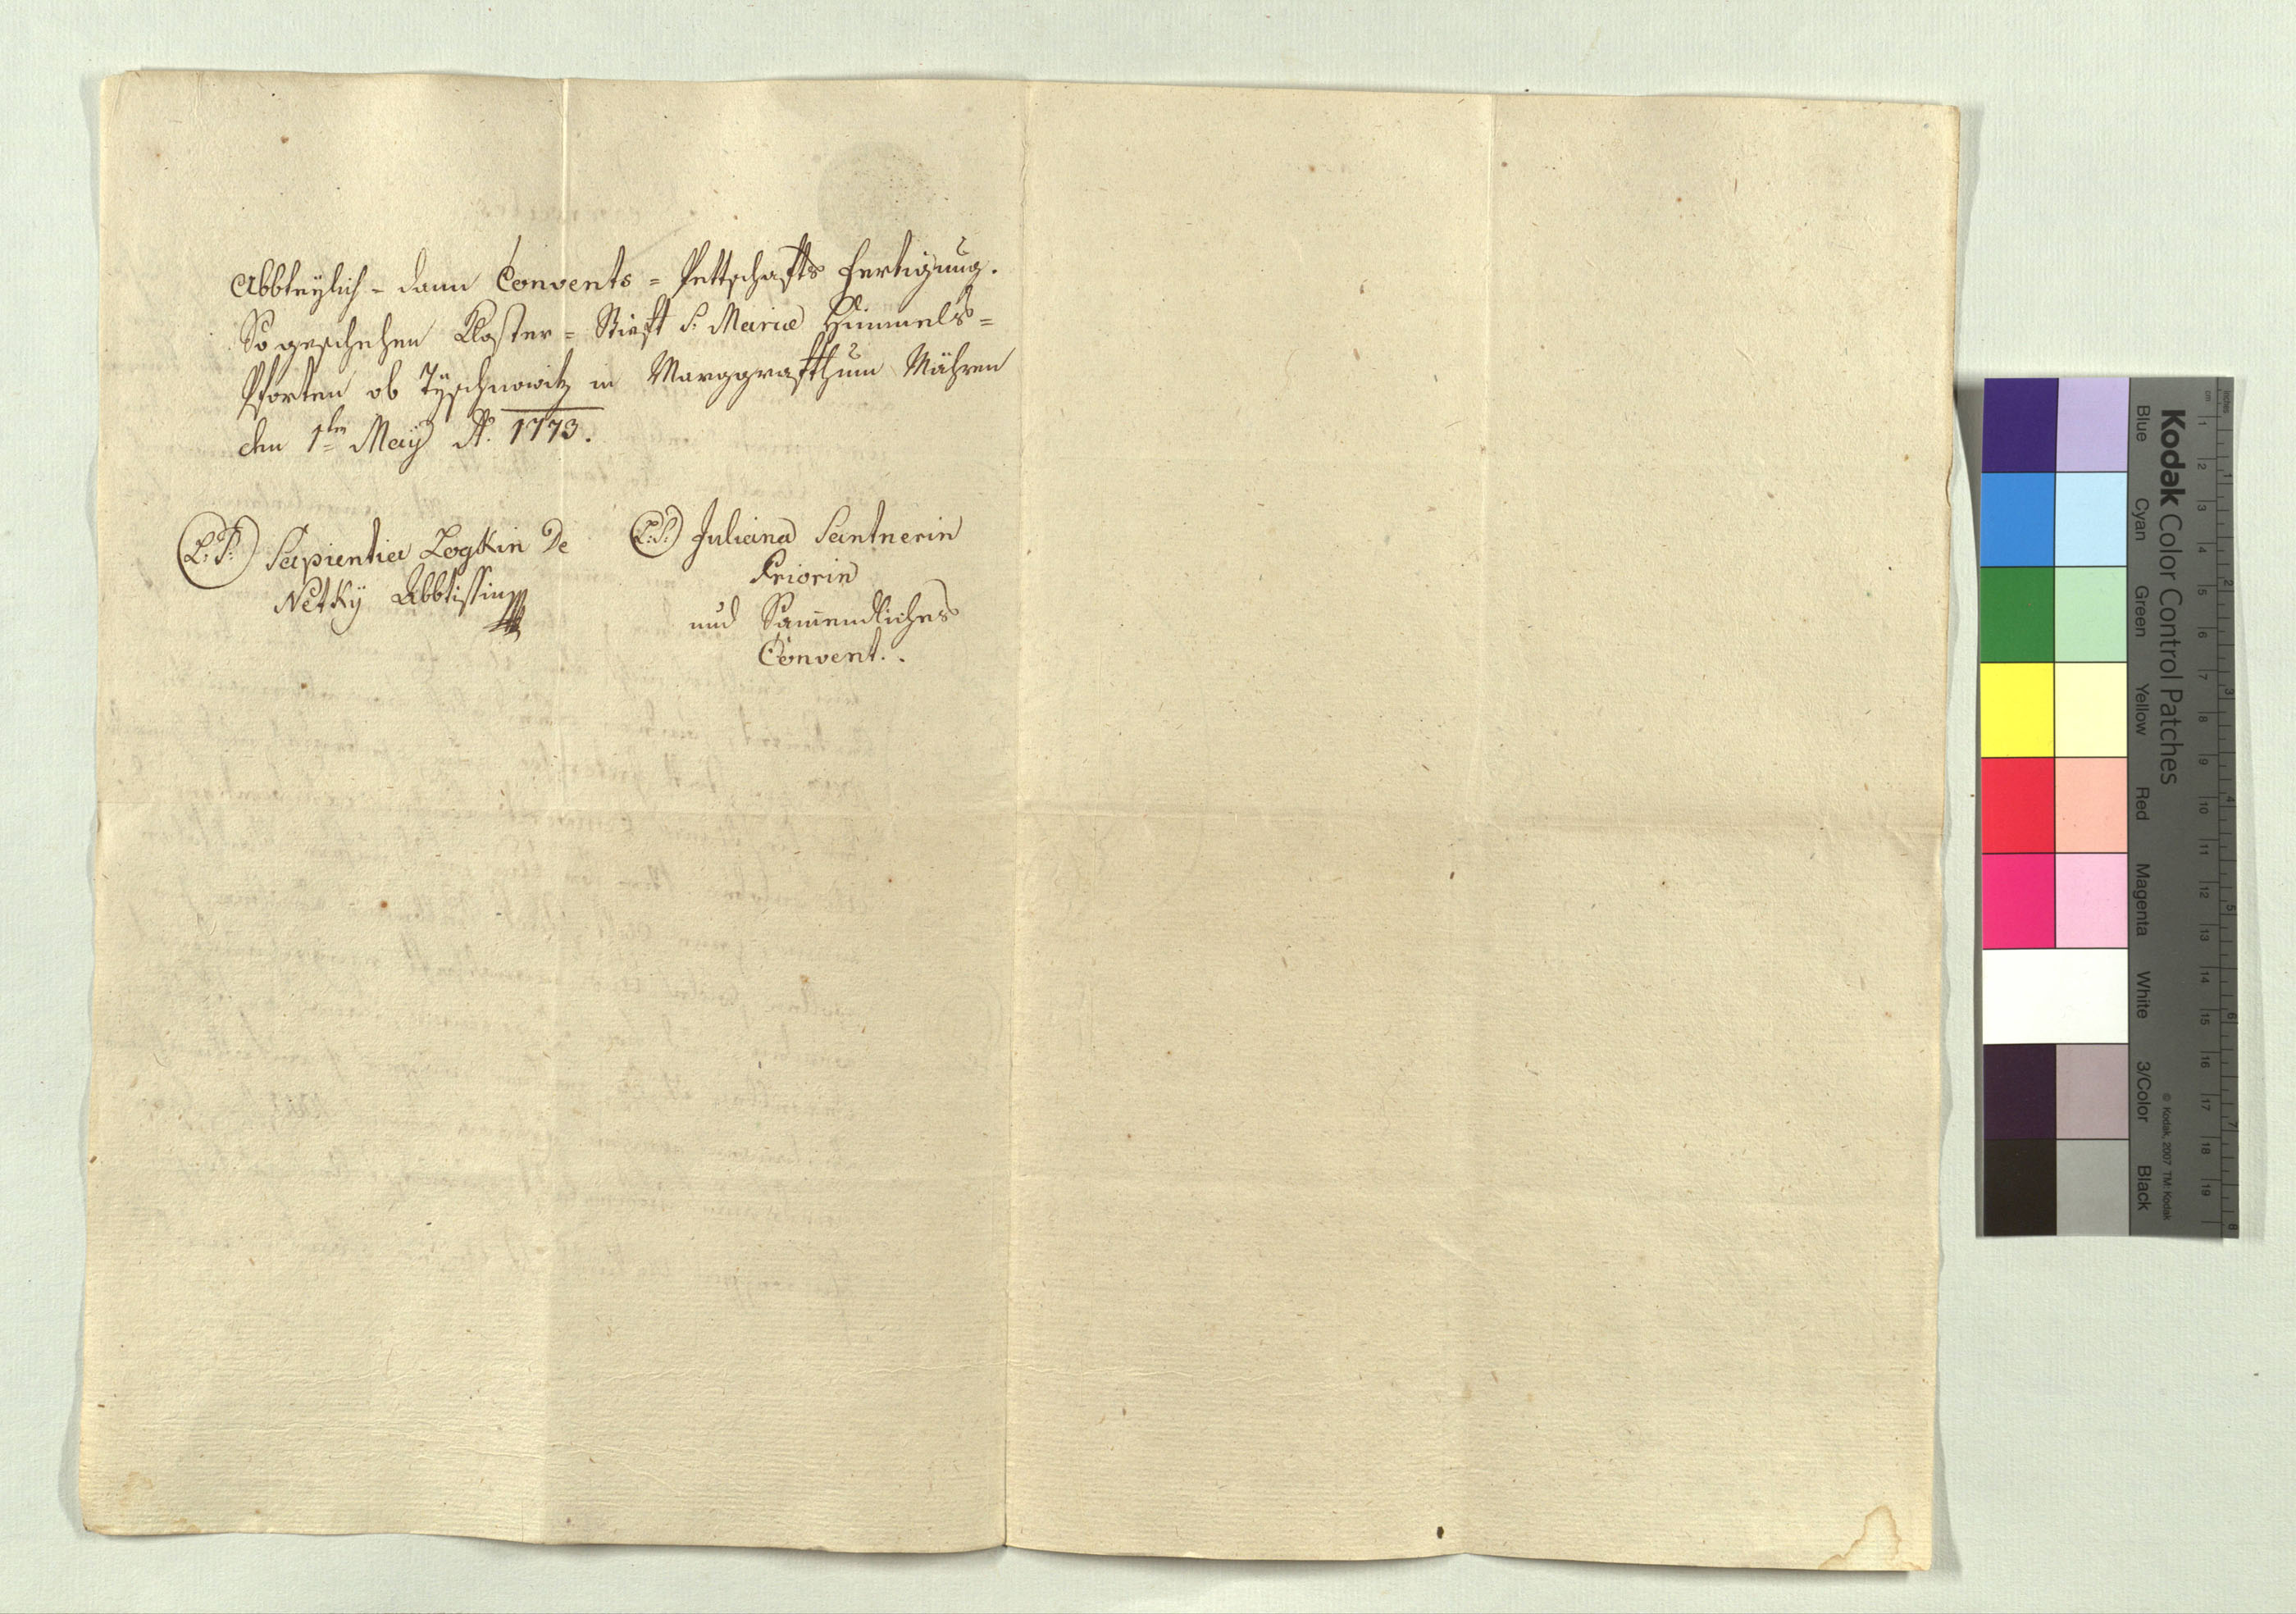 Abbteÿlich - dann Convents = Pettschaffts Fertigung.
So geschehen Kloster = Stifft S: Mariæ Himmels =
Pforten ob Tÿschnowitz in Marggraffthum Mähren
den 1ten Maÿ Ao. 1773.
(L: S:) Sapientia Logkin De
Netkÿ Abbtissin
(L: S:) Juliana Santnerin
Priorin
und Sam̅endliches
Convent.
Kodak Color Control Patches
Blue Cyan Green Yellow Red Magenta White 3/Color Black
© Kodak, 2007 TM: Kodak
inches 1 2 3 4 5 6 7 8
cm 1 2 3 4 5 6 7 8 9 10 11 12 13 14 15 16 17 18 19